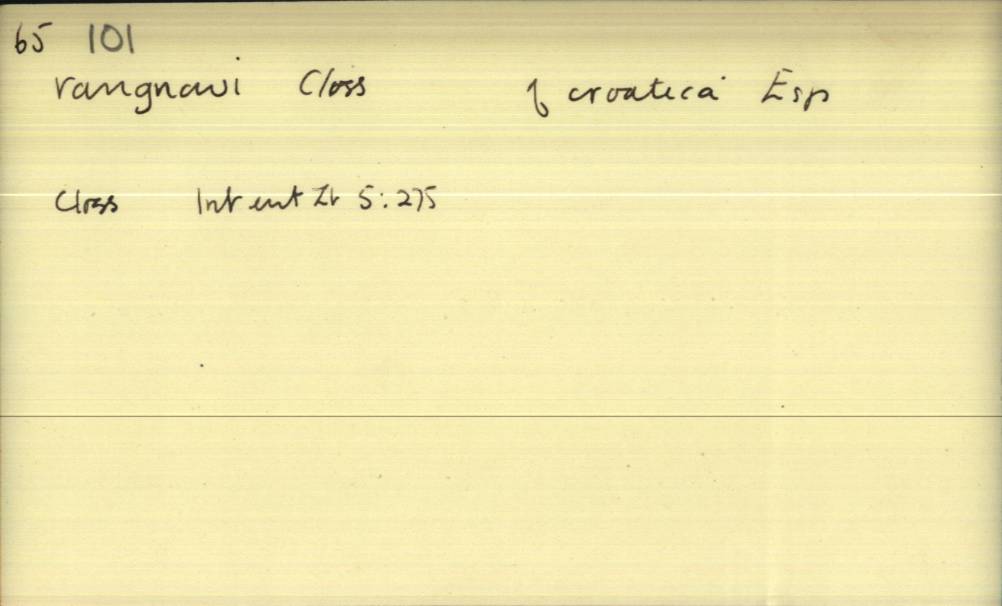 65 101
rangnowi Closs f croatica Esp
Closs Int ent Zt 5:275